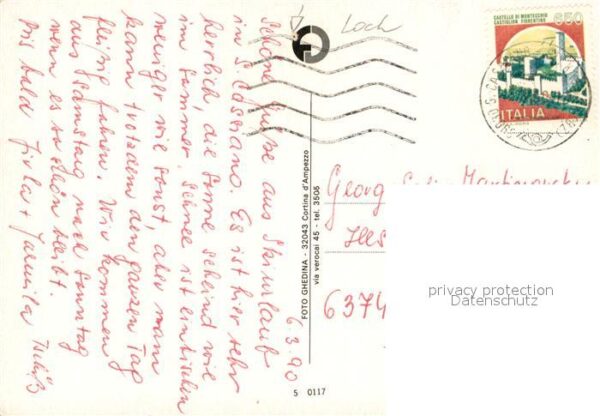 Loch
650
CASTELLO DI MONTECCHIO
CASTIGLION FIORENTINO
ITALIA
6.3.90
Schöne Grüße aus Skiurlaub
in S. Cassiano. Es ist hier sehr
herrlich die Sonne scheind wie
im Sommer, Schnee ist
weniger wie sonst, aber man
kann trotzdem den ganzen Tag
fleißig fahren. Wir kommen
aus Samstag nach Sonntag
wenn es so schön bleibt.
Bis bald Jirka + Jarmila Tschüß
FOTO GHEDINA - 32043 Cortina d'Ampezzo
via verocai 45 - tel. 3506
5 0117
Georg
6374
privacy protection
Datenschutz